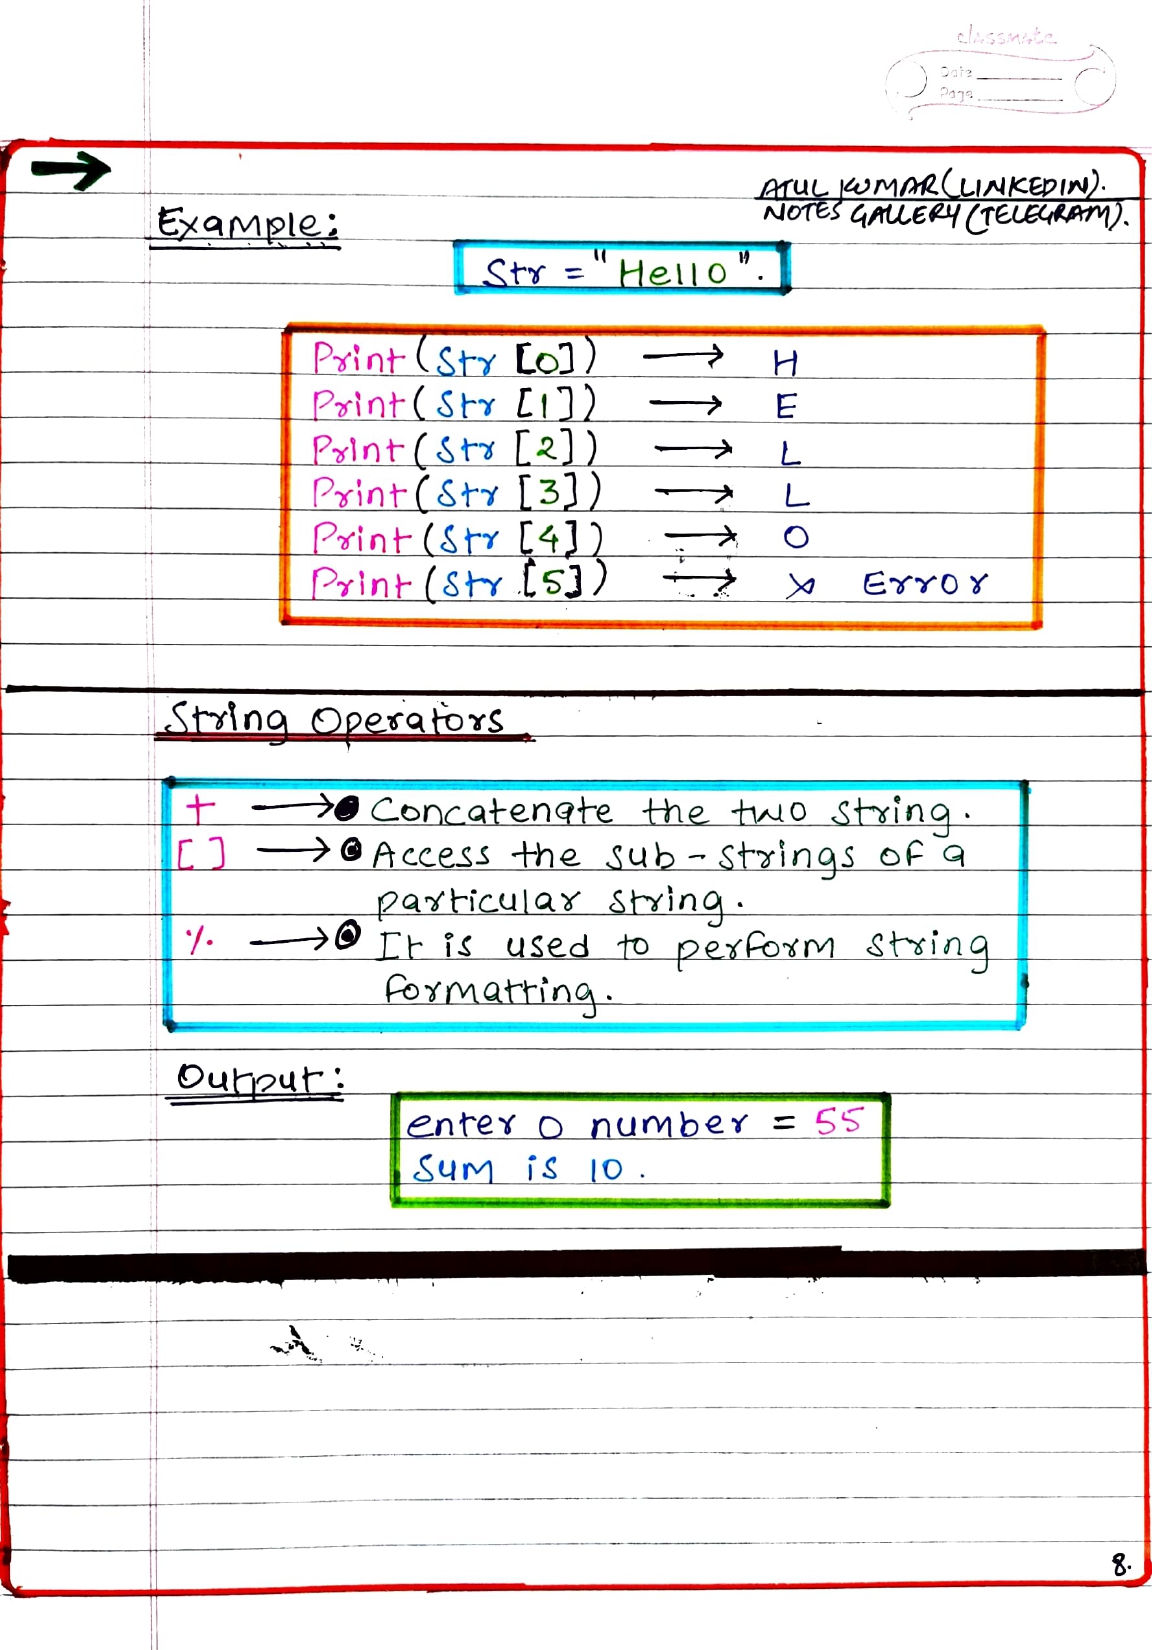 classmate
Date
Page
ATUL KUMAR (LINKEDIN).
NOTES GALLERY (TELEGRAM).
Example:
Str = "Hello".
Print (Str [0]) → H
Print (Str [1]) → E
Print (Str [2]) → L
Print (Str [3]) → L
Print (Str [4]) → O
Print (Str [5]) → x Error
String Operators
+ → Concatenate the two string.
[ ] → Access the sub-strings of a
particular string.
% → It is used to perform string
formatting.
Output:
enter 0 number = 55
Sum is 10.
8.